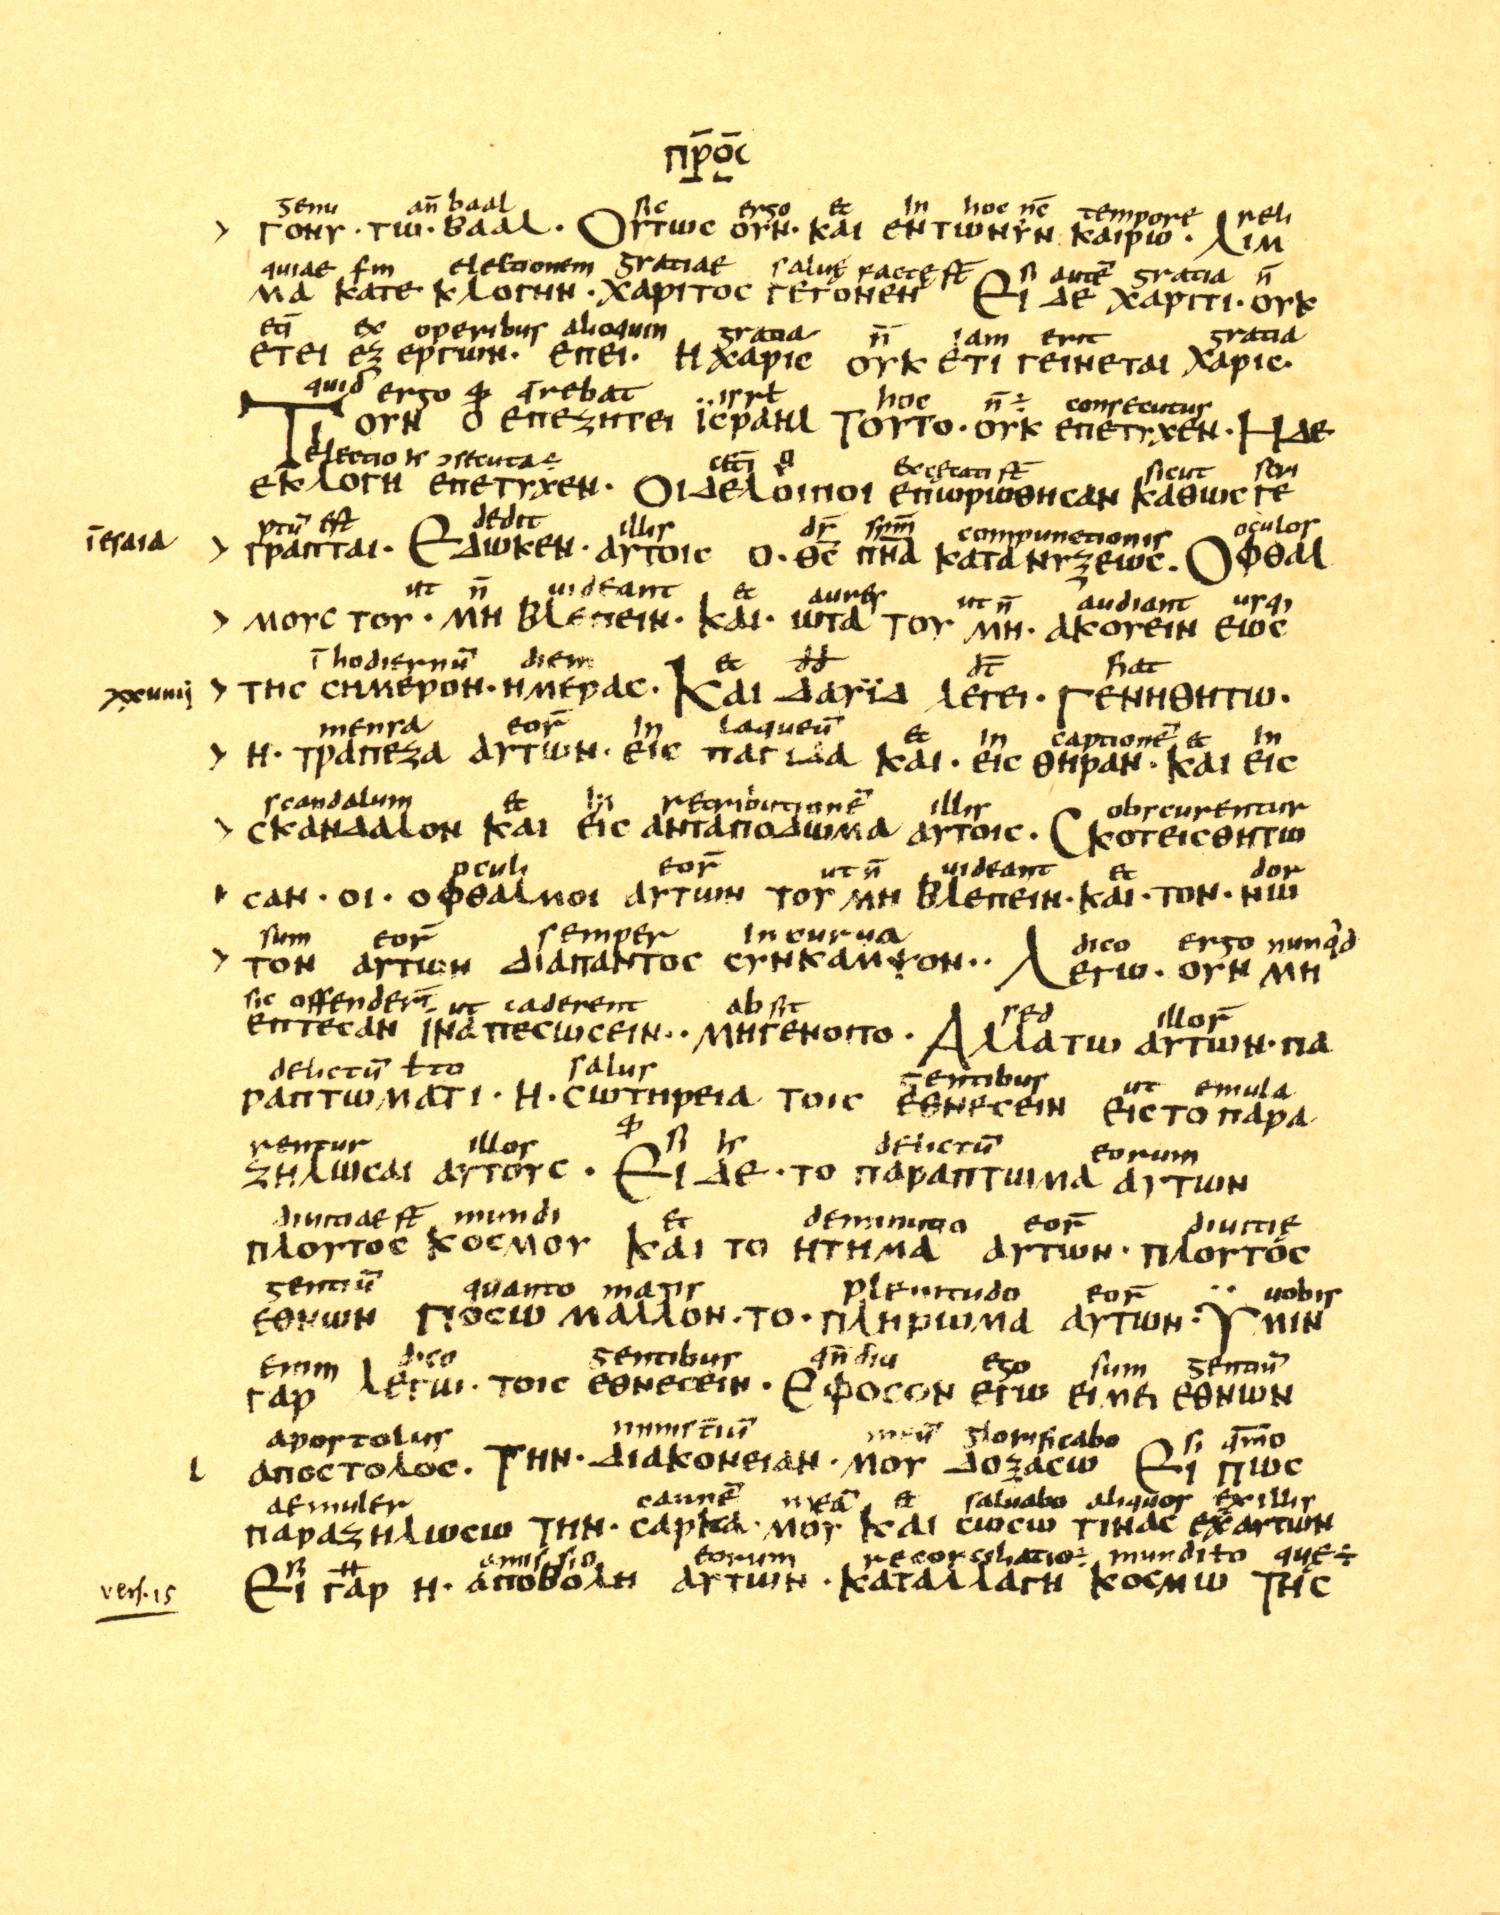 π̅ρ̅ο̅ς̅
genu an̄ baal sic ergo et in hoc nc̄ tempore reli
> γονυ · τω · βααλ · Ουτως ουν · και εν τωνυν καιρω · λιμ
quiae sm electionem gratiae salue facte st̄ si autē gratia n̄
μα κατε κλογην · χαριτος γεγονεν Ει δε χαριτι · ουκ
ex operibus alioquin gratia n̄ iam erit gratia
ετει εξ εργων · επει · η χαρις ουκ ετι γεινεται χαρις ·
quid ergo qrebat isrl hoc n̄÷ consecutus
Τι ουν ο επεζητει ϊσραηλ Τουτο · ουκ επετυχεν · Η δε
electio excecati st̄ sicut scri
εκλογη επετυχεν · Οι δε λοιποι επωρωθησαν καθως γε
ptū est dedit illis dr̄ spm̄ compunctionis oculos
ῑesaia > γραπται · Εδωκεν · αυτοις ο · θ̅ς̅ π̅ν̅α̅ κατανυξεως · Οφθαλ
ut n̄ uideant et aures ut n̄ audiant usqi
> μους του · μη βλεπειν · και · ωτα του μη · ακουειν εως
ī hodiernū diem et dd dt̄ fiat
xxuiiij > της σημερον · ημερας · Και δαυϊδ λεγει · γενηθητω ·
mensa eor̄ in laqueū et in captionē et in
> η · τραπεζα αυτων · εις παγιδα και · εις θηραν · και εις
scandalum et in retributionnē illis obscurentur
> σκανδαλον και εις ανταποδωμα αυτοις · Σκοτεισθητω
oculi eor̄ ut n̄ uideant et dor
> σαν · οι · οφθαλμοι αυτων του μη βλεπειν · και · τον · νω
sum eor̄ semper incurua dico ergo nunqd
> τον αυτων διαπαντος συνκαμψον ·· Λεγω · ουν μη
sic offender̄ ut caderent absit sed illor̄
επτεσαν ινα πεσωσειν ·· μηγενοιτο · Αλλα τω αυτων · πα
delictū salus gentibus ut emula
ραπτωματι · η · σωτηρεια τοις εθνεσειν εις το παρα
rentur illos si delictū eorum
ζηλωσαι αυτους · Ει δε · το παραπτωμα αυτων
diuitiae st̄ mundi et deminutio eor̄ diuitie
πλουτος κοσμου και το ητημα αυτων · πλουτος
gentiū quanto magis plenitudo eor̄ uobis
εθνων ποσω μαλλον · το · πληρωμα αυτων · Ϋμιν
enim dico gentibus qn̄diu ego sum gentiū
γαρ λεγωι · τοις εθνεσειν · Εφοσον εγω ειμει εθνων
apostolus minist̄iū meū glorificabo si qm̄o
l αποστολος · Την · διακονειαν · μου δοξασω Ει πως
aemuler carnē meā et saluabo aliquos ex illis
παραζηλωσω την · σαρκα · μου και σωσω τινας εξ αυτων
si amissio eorum reconciliatio÷ mundi que÷
vers. 15 Ει γαρ η · αποβολη αυτων · καταλλαγη κοσμω της